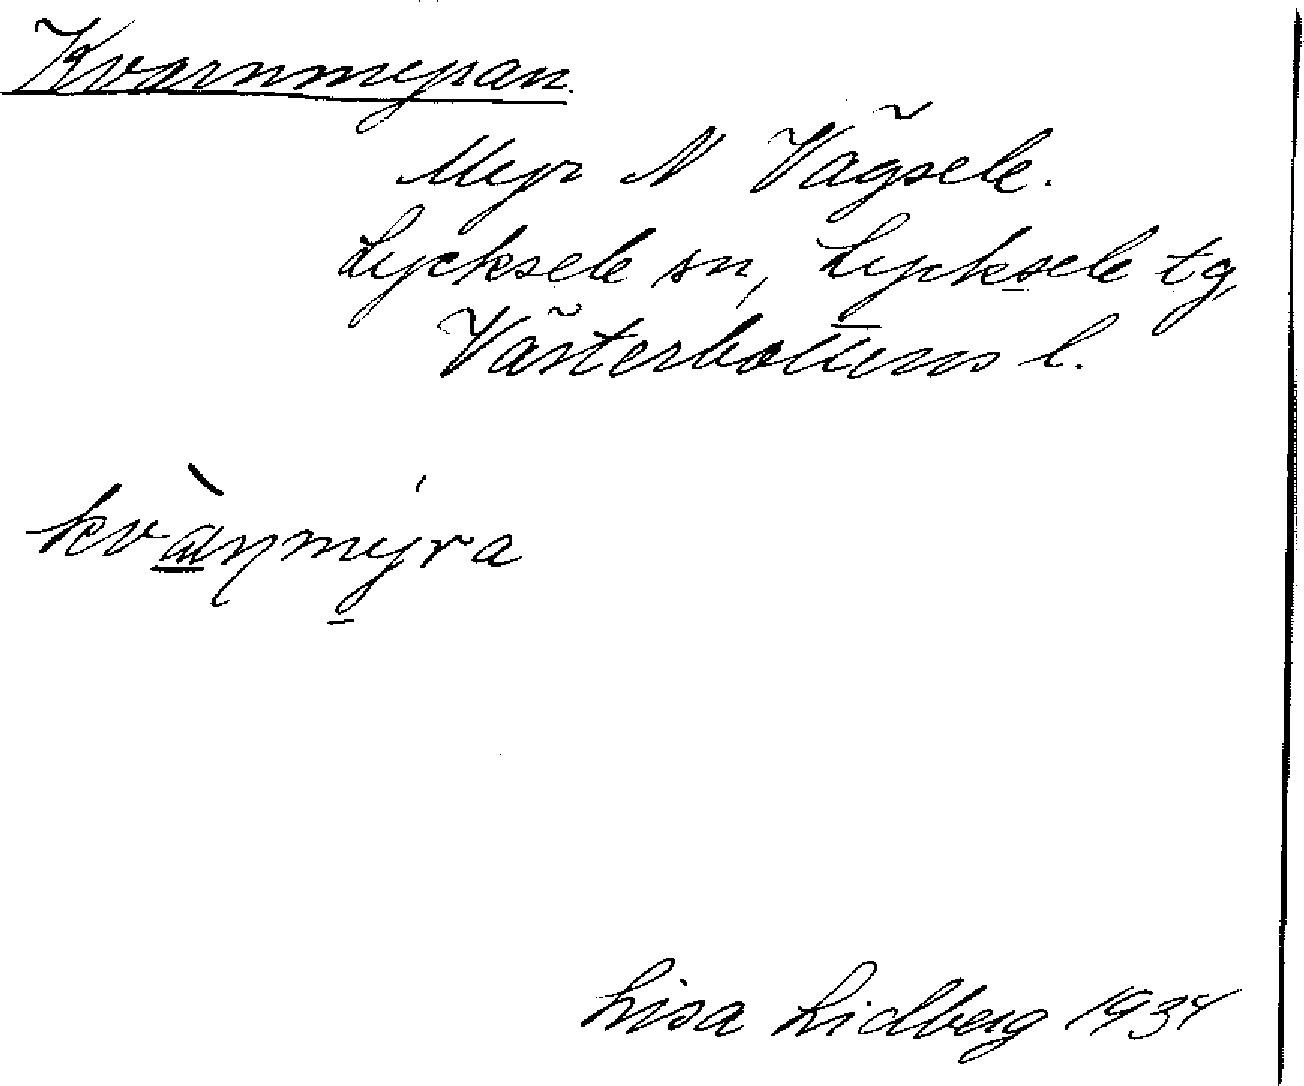 Kvarnmyran.
Myr N Vägsele.
Lycksele sn, Lycksele tg
Västerbottens l.
kvànmýra
Lisa Lidberg 1934